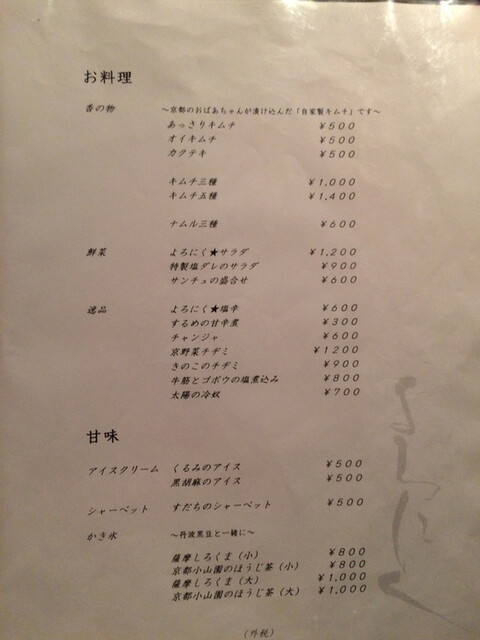 お料理
香の物 ～京都のおばあちゃんが漬け込んだ「自家製キムチ」です～
あっさりキムチ ¥500
オイキムチ ¥500
カクテキ ¥500
キムチ三種 ¥1,000
キムチ五種 ¥1,400
ナムル三種 ¥600
鮮菜 よろにく★サラダ ¥1,200
特製塩ダレのサラダ ¥900
サンチュの盛合せ ¥600
逸品 よろにく★塩辛 ¥600
するめの甘辛煮 ¥300
チャンジャ ¥600
京野菜チヂミ ¥1200
きのこのチヂミ ¥900
牛筋とゴボウの塩煮込み ¥800
太陽の冷奴 ¥700
甘味
アイスクリーム くるみのアイス ¥500
黒胡麻のアイス ¥500
シャーベット すだちのシャーベット ¥500
かき氷 ～丹波黒豆と一緒に～
薩摩しろくま（小） ¥800
京都小山園のほうじ茶（小） ¥800
薩摩しろくま（大） ¥1,000
京都小山園のほうじ茶（大） ¥1,000
よろにく
（外税）